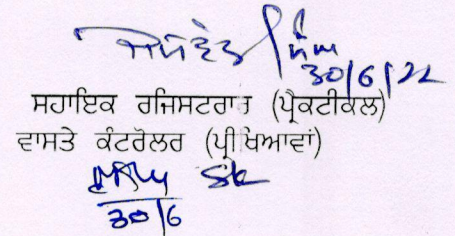 30/6/22
ਸਹਾਇਕ ਰਜਿਸਟਰਾਰ (ਪ੍ਰੈਕਟੀਕਲ)
ਵਾਸਤੇ ਕੰਟਰੋਲਰ (ਪ੍ਰੀਖਿਆਵਾਂ)
30/6